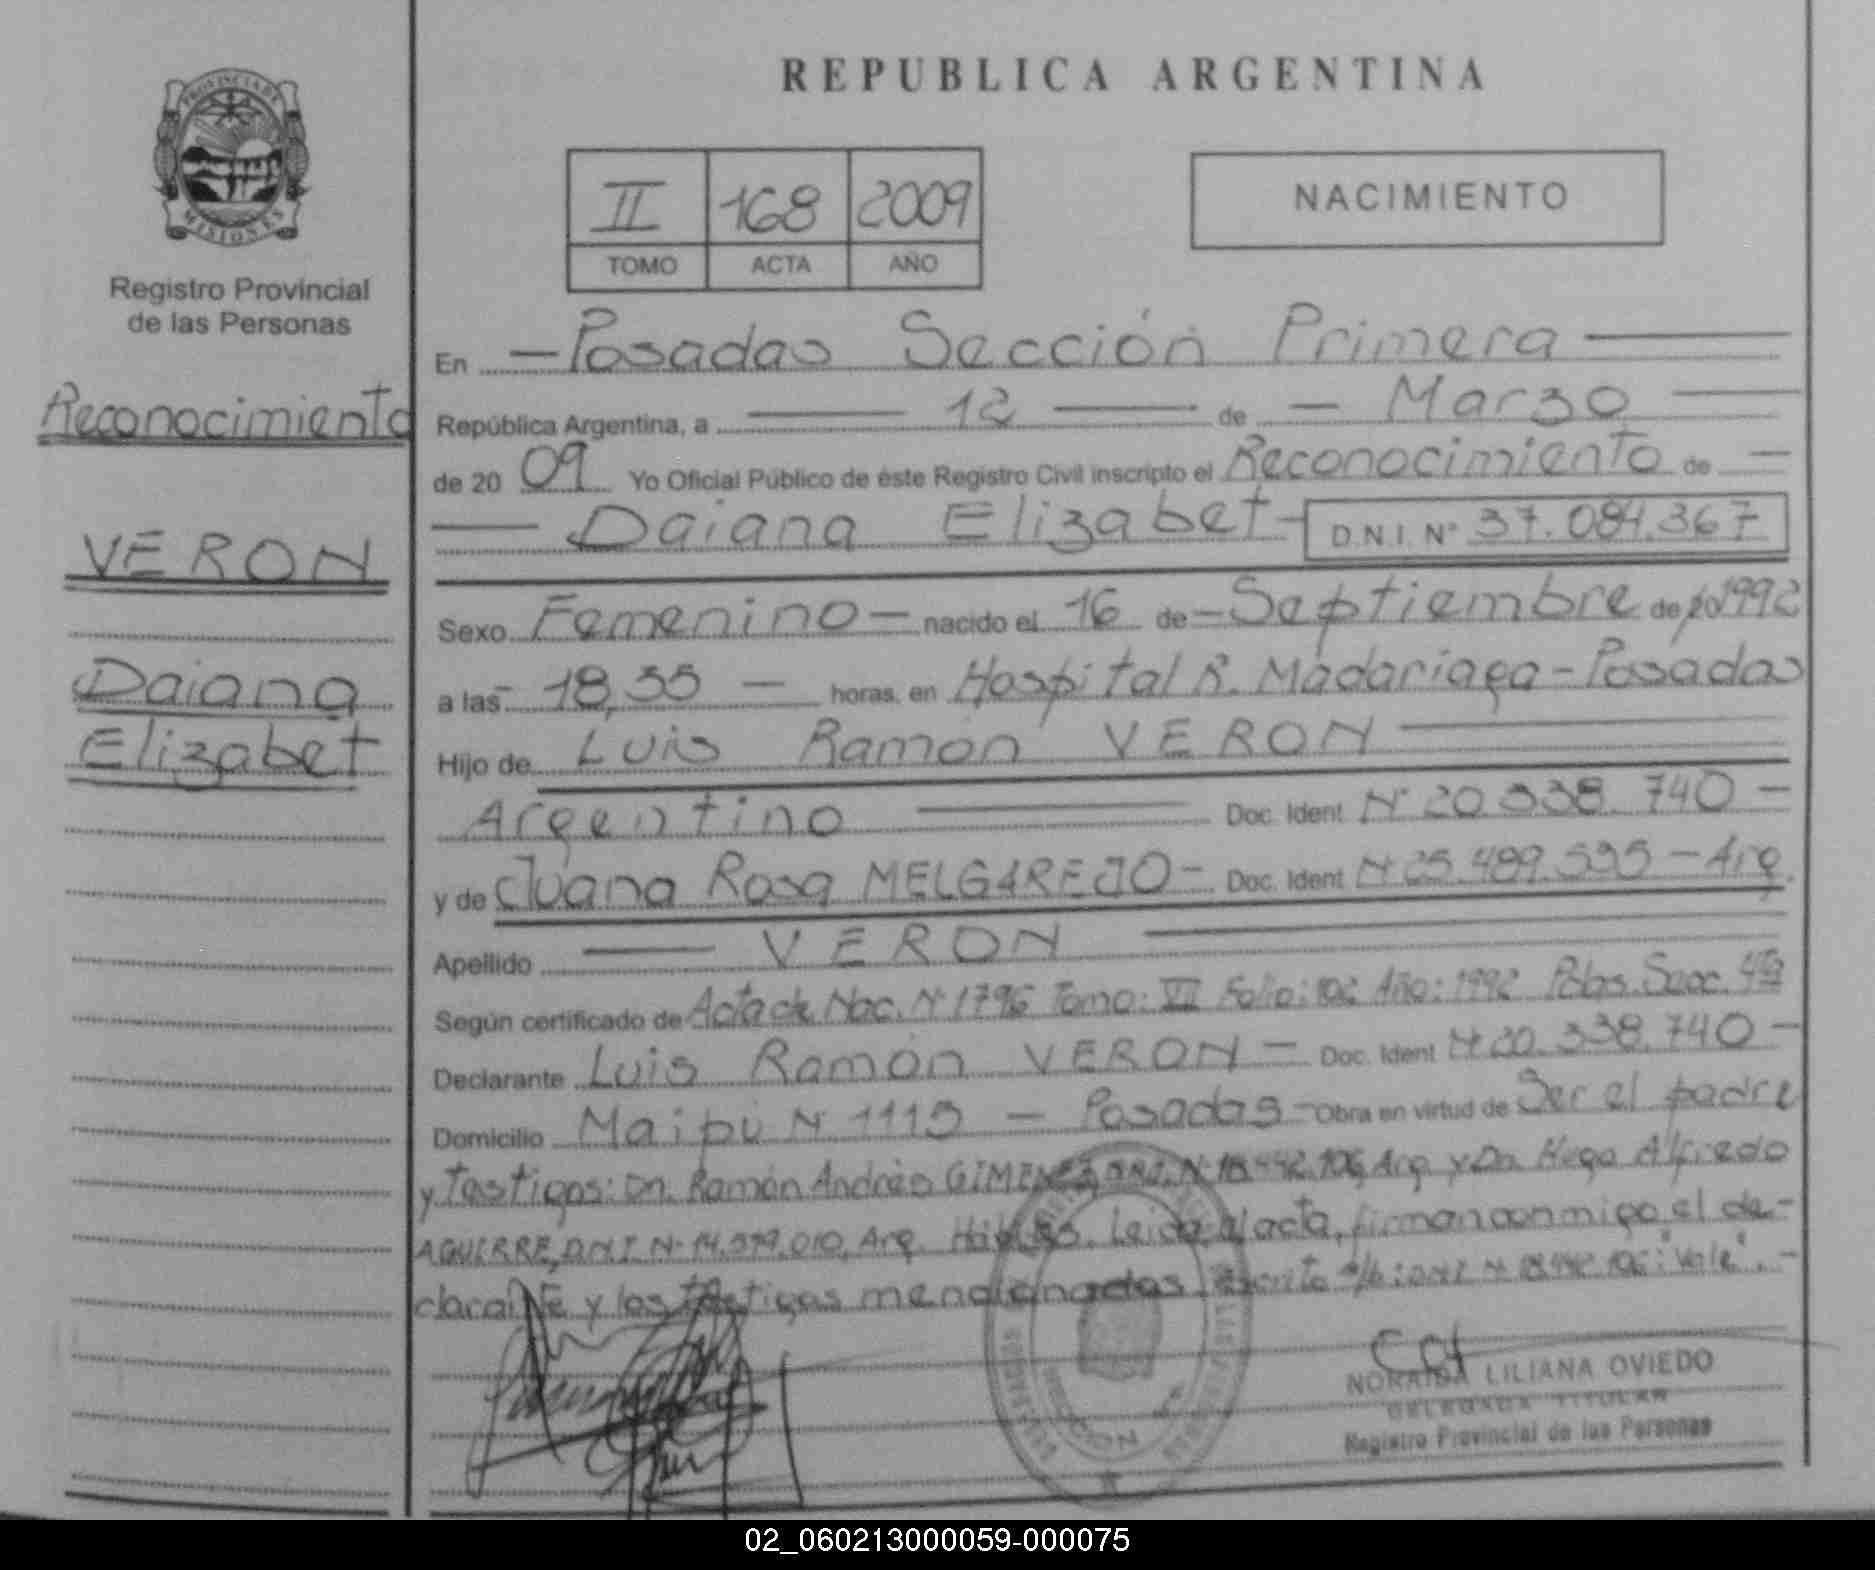 PROVINCIA DE
MISIONES
Registro Provincial
de las Personas
Reconocimiento
VERON
Daiana
Elizabet
REPUBLICA ARGENTINA
II 168 2009
TOMO ACTA AÑO
NACIMIENTO
En — Posadas Sección Primera —
República Argentina, a — 12 — de — Marzo —
de 20 09 Yo Oficial Público de éste Registro Civil inscripto el Reconocimiento de —
— Daiana Elizabet - D.N.I. N° 37.084.367
Sexo Femenino — nacido el 16 de — Septiembre de 1992
a las - 18,35 — horas, en Hospital R. Madariaga - Posadas
Hijo de Luis Ramón VERON —
Argentino — Doc. Ident N° 20.338.740 —
y de Juana Rosa MELGAREJO - Doc. Ident N° 25.489.535 - Arg.
Apellido — VERON —
Según certificado de Acta de Nac. N° 1796 Tomo: VII Folio: 102 Año: 1992 Pdas. Secc. 4ta
Declarante Luis Ramón VERON — Doc. Ident N° 20.338.740 —
Domicilio Maipú N° 1115 — Posadas - Obra en virtud de Ser el padre
y testigos: Dn. Ramón Andrés GIMENEZ, D.N.I. N° 18.442.106, Arg. y Dn. Hugo Alfredo
AGUIRRE, D.N.I. N° 14.579.010, Arg. Hábiles. Leida el acta, firman conmigo el de-
clarante y los testigos mencionados. Escrito s/b: D.N.I. N° 18.442.106: "Vale". -
NORAIDA LILIANA OVIEDO
DELEGADA TITULAR
Registro Provincial de las Personas
02_060213000059-000075